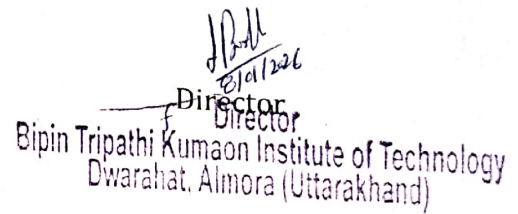 8/01/2026
Director
Director
Bipin Tripathi Kumaon Institute of Technology
Dwarahat, Almora (Uttarakhand)